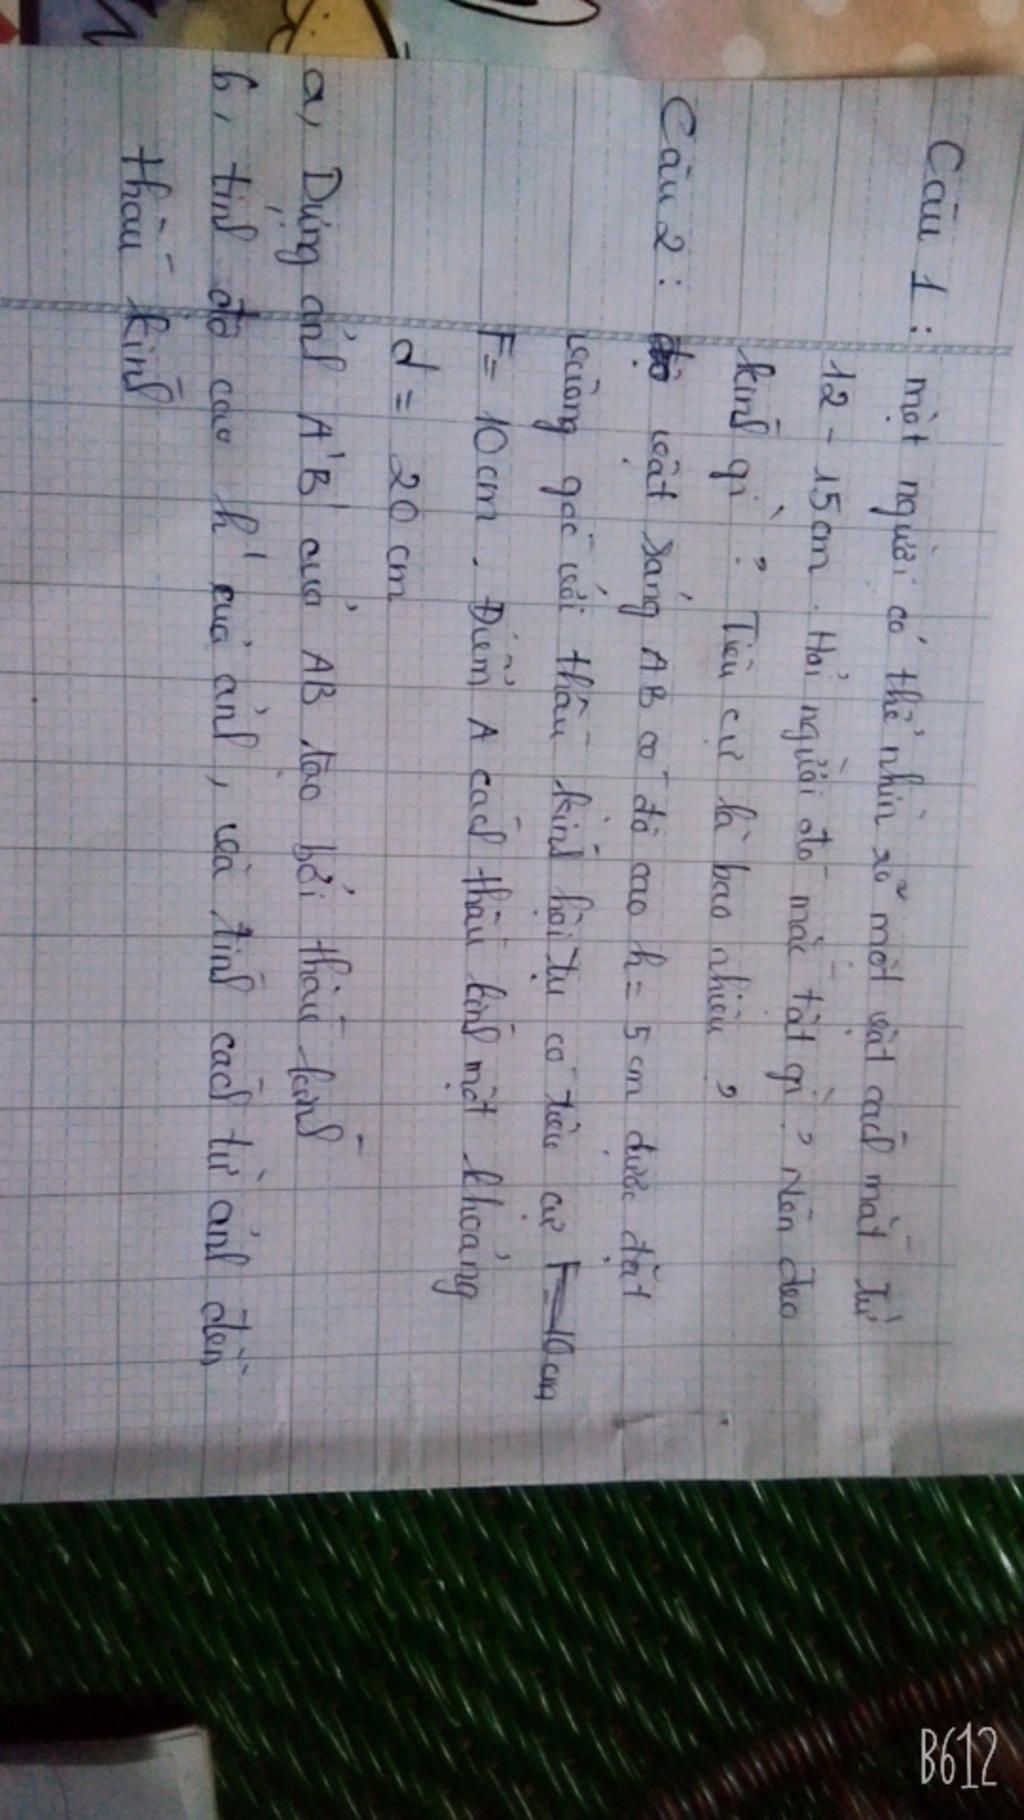 Câu 1: một người có thể nhìn rõ một vật cách mắt từ
12 - 15cm. Hỏi người đó mắc tật gì? Nên đeo
kính gì? Tiêu cự là bao nhiêu?
Câu 2: vật sáng AB có độ cao h = 5 cm được đặt
vuông góc với thấu kính hội tụ có tiêu cự F=10cm
F = 10cm. Điểm A cách thấu kính một khoảng
d = 20 cm
a, Dựng ảnh A'B' của AB tạo bởi thấu kính
b, tính độ cao h' của ảnh, và tính cách từ ảnh đến
thấu kính
B612